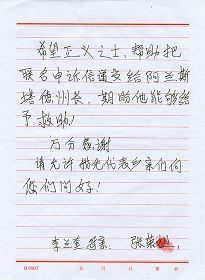 希望正义之士，帮助把
联名申诉信递交给阿兰斯
塔德州长，期盼他能够给
予救助！
万分感谢
请允许我先代表乡亲们向
您们问好！
李兰奎 张
B1607 年 月 日 第 页